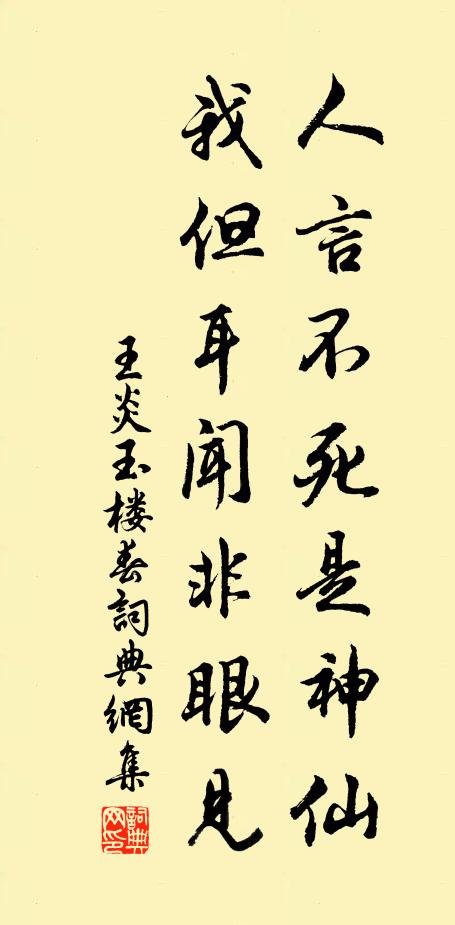 人言不死是神仙
我但耳闻非眼见
王炎玉楼春詞典網集
詞典網印